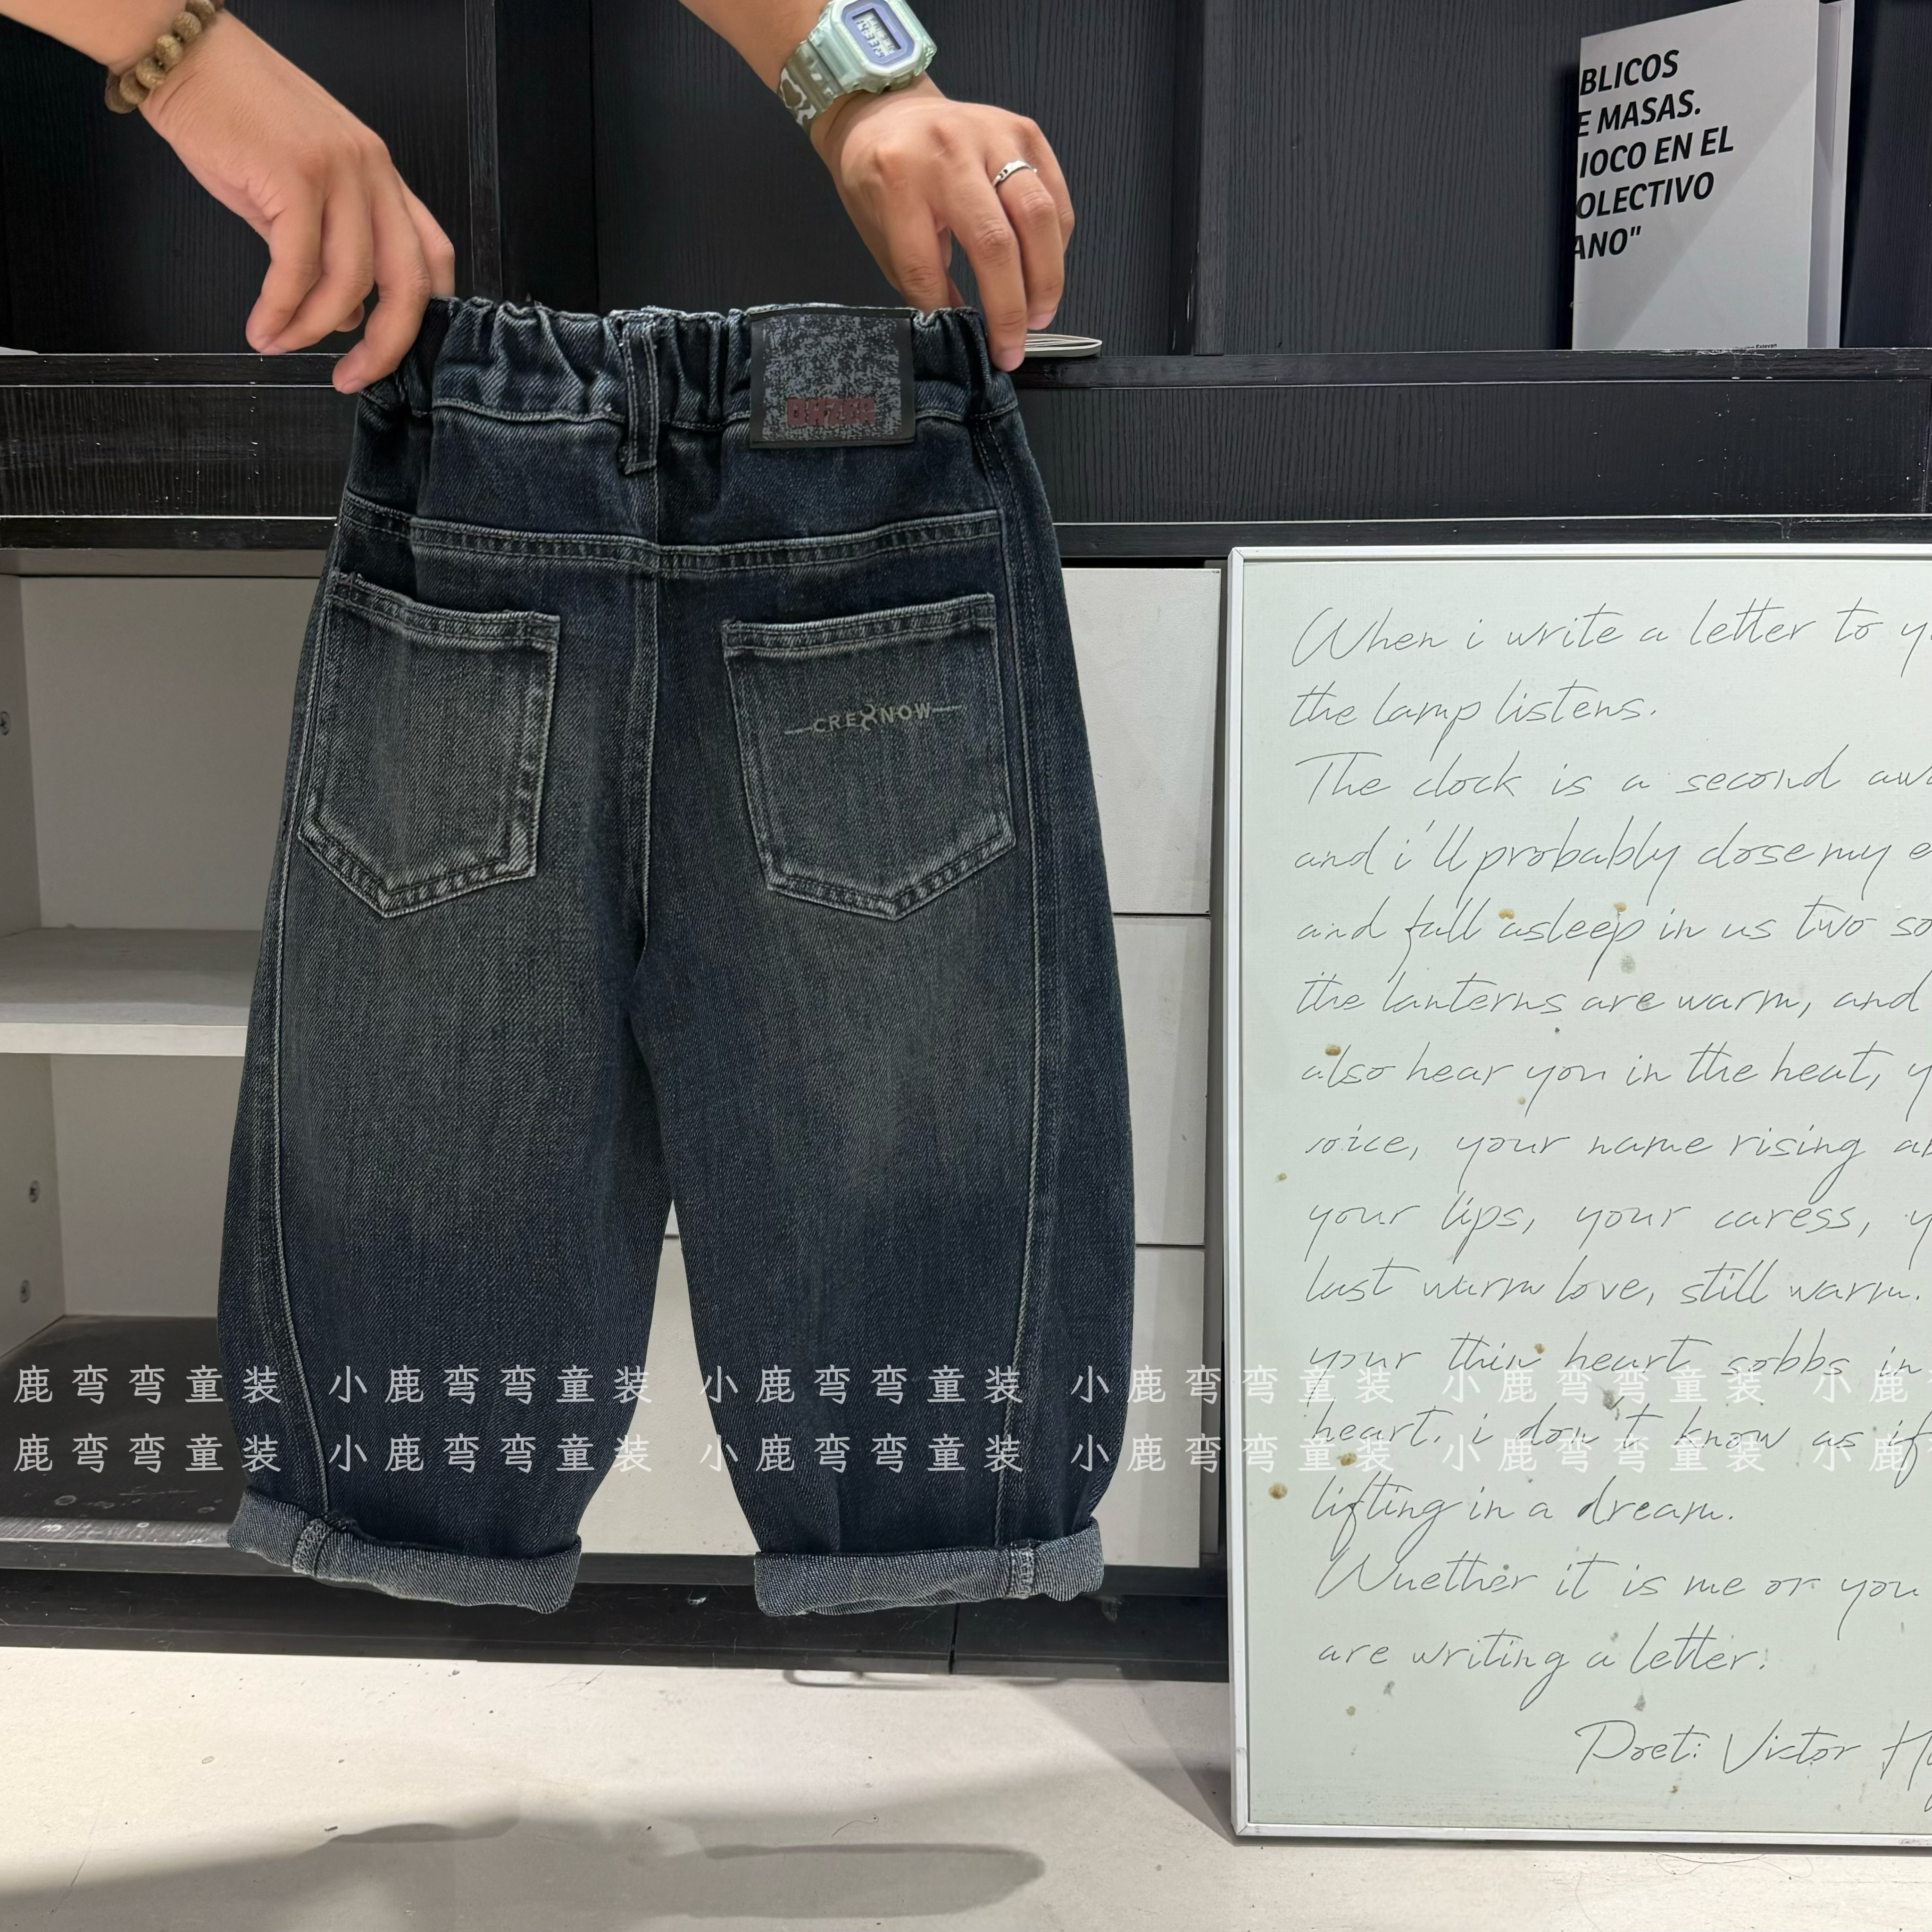 BLICOS
E MASAS.
IOCO EN EL
OLECTIVO
ANO"
CRE NOW
When i write a letter to y
the lamp listens.
The clock is a second aw
and i'll probably close my e
and fall asleep in us two so
the lanterns are warm, and
also hear you in the heat, y
voice, your name rising an
your lips, your caress, y
last warm love, still warm.
your thin heart sobbs in
heart. i don't know as if
lifting in a dream.
Wuether it is me or you
are writing a letter.
Poet: Victor H
鹿弯弯童装 小鹿弯弯童装 小鹿弯弯童装 小鹿弯弯童装 小鹿弯弯童装 小鹿
鹿弯弯童装 小鹿弯弯童装 小鹿弯弯童装 小鹿弯弯童装 小鹿弯弯童装 小鹿